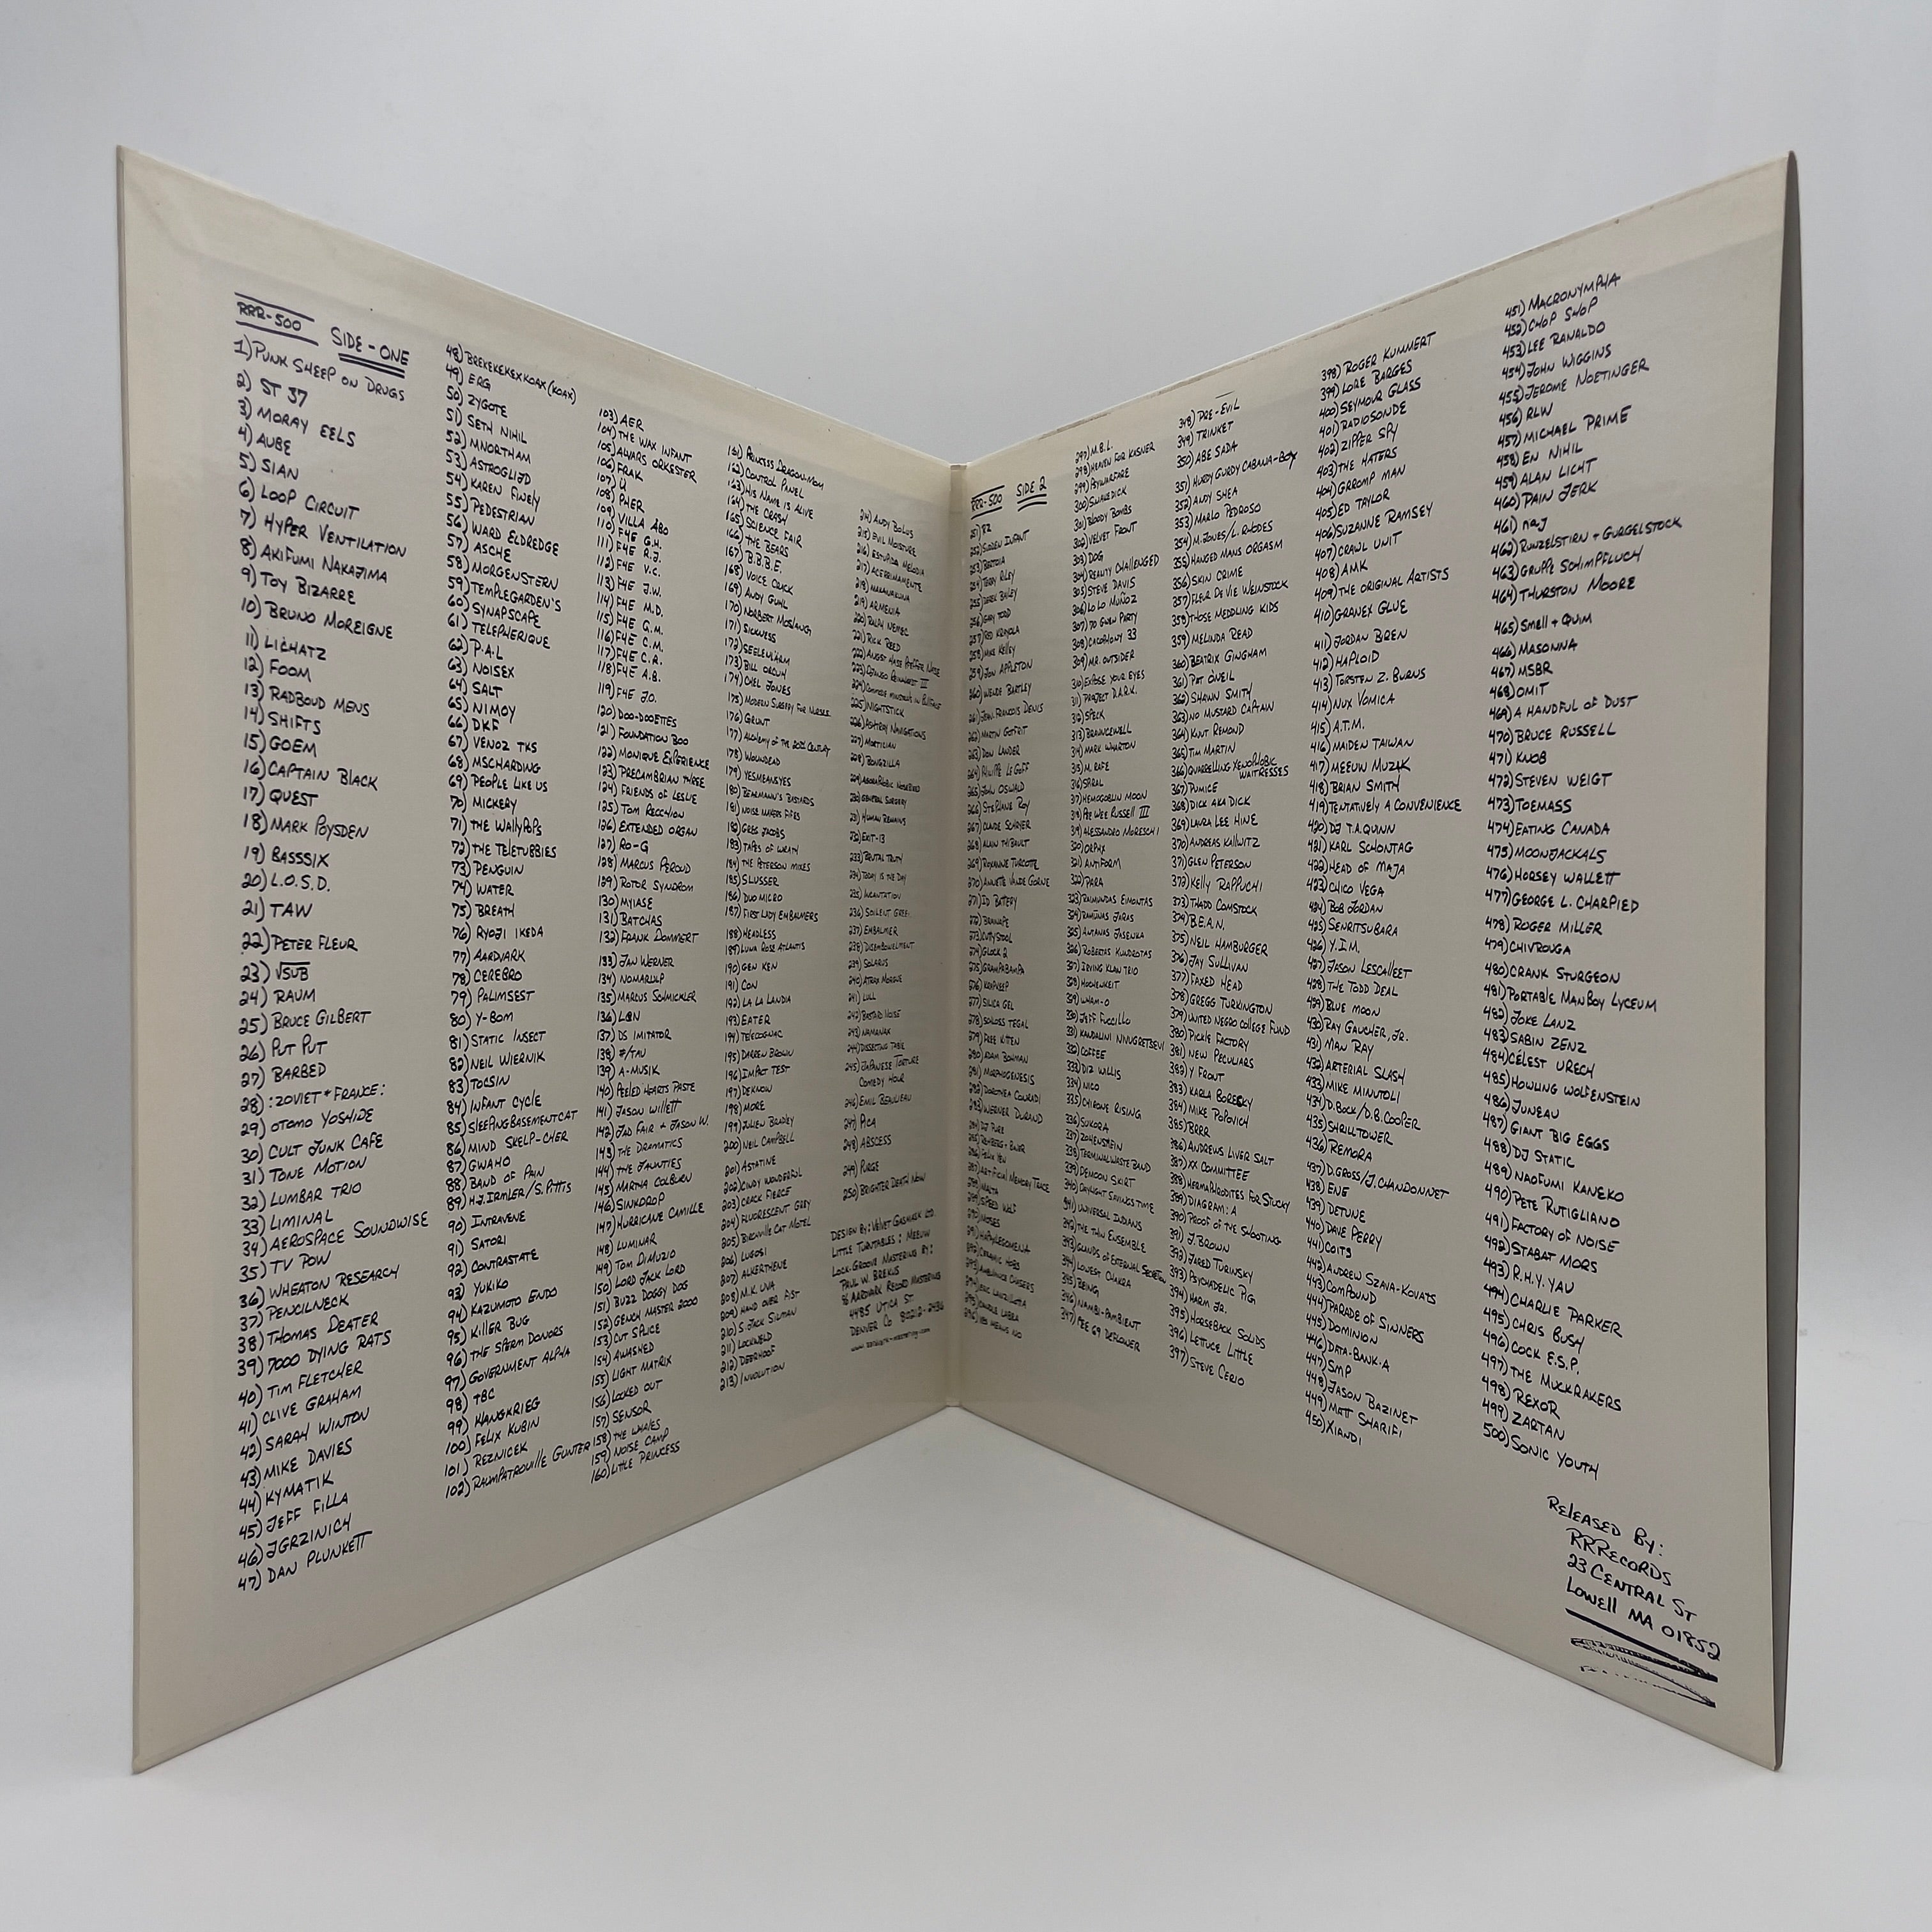 RRR-500 SIDE-ONE
1) PUNK SHEEP ON DRUGS
2) ST 37
3) MORAY EELS
4) AUBE
5) SIAN
6) LOOP CIRCUIT
7) HYPER VENTILATION
8) AKIFUMI NAKAJIMA
9) TOY BIZARRE
10) BRUNO MOREIGNE
11) LICHATZ
12) FOOM
13) RADBOUD MENS
14) SHIFTS
15) GOEM
16) CAPTAIN BLACK
17) QUEST
18) MARK POYSDEN
19) BASSSIX
20) L.O.S.D.
21) TAW
22) PETER FLEUR
23) √SUB
24) RAUM
25) BRUCE GILBERT
26) PUT PUT
27) BARBED
28) :ZOVIET*FRANCE:
29) OTOMO YOSHIDE
30) CULT JUNK CAFE
31) TONE MOTION
32) LUMBAR TRIO
33) LIMINAL
34) AEROSPACE SOUNDWISE
35) TV POW
36) WHEATON RESEARCH
37) PENCILNECK
38) THOMAS DEATER
39) 7000 DYING RATS
40) TIM FLETCHER
41) CLIVE GRAHAM
42) SARAH WINTON
43) MIKE DAVIES
44) KYMATIK
45) JEFF FILLA
46) JGRZINICH
47) DAN PLUNKETT
48) BREKEKEKEXKOAX (KOAX)
49) ERG
50) ZYGOTE
51) SETH NIHIL
52) MNORTHAM
53) ASTROGLIJD
54) KAREN FINELY
55) PEDESTRIAN
56) WARD ELDREDGE
57) ASCHE
58) MORGENSTERN
59) TEMPLEGARDEN'S
60) SYNAPSCAPE
61) TELEPHERIQUE
62) P.A.L
63) NOISEX
64) SALT
65) NIMOY
66) DKF
67) VENOZ TKS
68) MSCHARDING
69) PEOPLE LIKE US
70) MICKERY
71) THE WALLYPOPS
72) THE TELETUBBIES
73) PENGUIN
74) WATER
75) BREATH
76) RYOJI IKEDA
77) AARDVARK
78) CEREBRO
79) PALIMSEST
80) Y-BOM
81) STATIC INSECT
82) NEIL WIERNIK
83) TOCSIN
84) INFANT CYCLE
85) SLEEPINGBASEMENTCAT
86) MIND SKELP-CHER
87) GWAHO
88) BAND OF PAIN
89) H.J. IRMLER/S. PITTIS
90) INTRAVENE
91) SATORI
92) CONTRASTATE
93) YUKIKO
94) KAZUMOTO ENDO
95) KILLER BUG
96) THE SPERM DONORS
97) GOVERNMENT ALPHA
98) TBC
99) HANGKRIEG
100) FELIX KUBIN
101) REZNICEK
102) RAUMPATROUILLE GUNTER
103) AER
104) THE WAX INFANT
105) ALVARS ORKESTER
106) FRAK
107) U
108) PHER
109) VILLA ABO
110) F4E G.H.
111) F4E R.J.
112) F4E V.C.
113) F4E J.W.
114) F4E M.D.
115) F4E G.M.
116) F4E C.M.
117) F4E C.R.
118) F4E A.B.
119) F4E JO.
120) DOO-DOOETTES
121) FOUNDATION BOO
122) MONIQUE EXPERIENCE
123) PRECAMBRIAN THREE
124) FRIENDS OF LESLIE
125) TOM RECCHION
126) EXTENDED ORGAN
127) RO-G
128) MARCUS PEROUD
129) ROTOR SYNDROM
130) MYIASE
131) BATCHAS
132) FRANK DOMMERT
133) JAN WERNER
134) NOMARDLP
135) MARCUS SCHMICKLER
136) L@N
137) DS IMITATOR
138) F/TAU
139) A-MUSIK
140) PEELED HEARTS PASTE
141) JASON WILLETT
142) JAD FAIR & JASON W.
143) THE DRAMATICS
144) THE JAUNTIES
145) MARTHA COLBURN
146) SINKDROP
147) HURRICANE CAMILLE
148) LUMINAR
149) TOM DIMUZIO
150) LORD JACK LORD
151) BUZZ DOGGY DOG
152) GENCH MASTER 2000
153) CUT SPLICE
154) AWASHED
155) LIGHT MATRIX
156) LOCKED OUT
157) SENSOR
158) THE WHALES
159) NOISE CAMP
160) LITTLE PRINCESS
161) PRINCESS DRAGON-MOM
162) CONTROL PANEL
163) HIS NAME IS ALIVE
164) THE CRASH
165) SCIENCE FAIR
166) THE BEARS
167) B.B.B.E.
168) VOICE CRACK
169) ANDY GUHL
170) NORBERT MOSLANG
171) SICKNESS
172) SEELENWÄRM
173) BILL ORCUTT
174) CHEL JONES
175) MODERN SURGERY FOR NURSES
176) GRUNT
177) ALCHEMY OF THE 20TH CENTURY
178) WOUNDEAD
179) YESMEANSYES
180) BEARMANN'S BASTARDS
181) NOISE MAKERS FIFES
182) GREG JACOBS
183) TAPES OF WRATH
184) THE PETERSON MIXES
185) SLUSSER
186) DUO MICRO
187) FIRST LADY EMBALMERS
188) HEADLESS
189) LUNA ROSE ATLANTIS
190) GEN KEN
191) CON
192) LA LA LANDIA
193) EATER
194) TELECOGNAC
195) DARREN BROWN
196) IMPACT TEST
197) DEKNOW
198) MORE
199) JULIEN BRADLEY
200) NEIL CAMPBELL
201) ASTATINE
202) CINDY WONDERFUL
203) CRACK FIERCE
204) FLUORESCENT GREY
205) BIRCHVILLE CAT MOTEL
206) LUGOSI
207) ALKERTHENE
208) M.K. UNA
209) HAND OVER FIST
210) S. JACK SILMAN
211) LOCKWELD
212) DEERHOOF
213) INVOLUTION
214) ANDY BOLUS
215) EVIL MOISTURE
216) ESTUPIDA MELODIA
217) ACERRIMAMENTE
219) ARMENIA
220) RALPH NEMEC
221) RICK REED
225) NIGHTSTICK
226) ASHTRAY NAVIGATIONS
227) MORTICIAN
228) BONGZILLA
230) GENERAL SURGERY
231) HUMAN REMAINS
232) EXIT-13
233) BRUTAL TRUTH
234) TODAY IS THE DAY
235) INCANTATION
236) SOILENT GREEN
237) EMBALMER
238) DISEMBOWELMENT
239) SOLARUS
240) ATRAX MORGUE
241) LULL
242) BASTARD NOISE
243) NAMANAX
244) DISSECTING TABLE
245) JAPANESE TORTURE
COMEDY HOUR
246) EMIL BEAULIEAU
247) PICA
248) ABSCESS
249) PURGE
250) BRIGHTER DEATH NOW
DESIGN BY: VELVET GASMASK LTD.
LITTLE TURNTABLES: MEEUW
LOCK-GROOVE MASTERING BY:
PAUL W. BREKUS
% AARDVARK RECORD MASTERING
4485 UTICA ST
DENVER CO 80212-2436
RRR-500 SIDE 2
251) 82
252) SUDDEN INFANT
253) BERTOIA
254) TERRY RILEY
255) DEREK BAILEY
256) GARY TODD
257) RED KRAYOLA
258) MIKE KELLEY
259) JON APPLETON
260) WENDE BARTLEY
261) JEAN-FRANCOIS DENIS
262) MARTIN GOTFRIT
263) DAN LANDER
264) PHILIPPE LE GOFF
265) JOHN OSWALD
266) STEPHANE ROY
267) CLAUDE SCHRYER
268) ALAIN THIBAULT
269) ROXANNE TURCOTTE
270) ANNETTE VANDE GORNE
271) ID BATTERY
272) BRAINAPE
273) CUTTYSTOOL
274) GLOCK 2
275) GRAMPABAMPA
277) SILICA GEL
278) SCHLOSS TEGAL
279) FREE KITTEN
280) ADAM BOHMAN
281) MORPHOGENESIS
282) DOROTHEA CONRADI
283) WERNER DURAND
284) DJ PURE
286) FELIX YEN
287) ARTIFICIAL MEMORY TRACE
288) MALTA
289) SPEED WOLF
290) MOSES
292) CERAMIC HOBS
293) AMBULANCE CHASERS
296) YES MEANS NO
297) M.B.L.
298) HEAVEN FOR KASNER
299) PSYWARFARE
300) SNAKEDICK
301) BLOODY BOMBS
302) VELVET FRONT
303) DOG
304) BEAUTY CHALLENGED
305) STEVE DAVIS
306) LO LO MUÑOZ
307) 70 GWEN PARTY
308) CACOPHONY 33
309) MR. OUTSIDER
310) EXPOSE YOUR EYES
311) PROJECT D.A.R.K.
312) SPECK
313) BRAINCEWELL
314) MARK WHARTON
315) M. RAFE
316) SPIRAL
317) HEMOGOBLIN MOON
318) PEE WEE RUSSELL III
319) ALESSANDRO MORESCHI
320) ORPHX
321) ANTIFORM
322) PARA
323) RAIMUNDAS EIMONTAS
324) RAMŪNAS JARAS
325) ANTANAS JASENKA
326) ROBERTAS KUNDROTAS
327) IRVING KLAN TRIO
328) HOCHENKEIT
329) WHAM-O
330) JEFF FUCCILLO
331) KANDALINI NNUGRETSEVI
332) COFFEE
333) DIZ WILLIS
334) NICO
335) CHIRONE RISING
336) SUKORA
337) ZOHENSTEIN
338) TERMINALWASTEBAND
339) DEMOON SKIRT
340) DAYLIGHT SAVINGS TIME
341) UNIVERSAL INDIANS
342) THE THIN ENSEMBLE
343) GLANDS OF EXTERNAL SECRETION
344) LOWEST CHAKRA
345) BEING
346) NAMBI-PAMBIENT
347) PEE 69 DEFLOWER
348) PRE-EVIL
349) TRINKET
350) ABE SADA
351) HURDY GURDY CABANA-BOY
352) ANDY SHEA
353) MARLO PEDROSO
354) M. JONES/L. RHODES
355) HANGED MANS ORGASM
356) SKIN CRIME
357) FLEUR DE VIE WEINSTOCK
358) THOSE MEDDLING KIDS
359) MELINDA READ
360) BEATRIX GINGHAM
361) PAT O'NEIL
362) SHAWN SMITH
363) NO MUSTARD CAPTAIN
364) KNUT REMOND
365) TIM MARTIN
366) QUARRELLING XENOPHOBIC
WAITRESSES
367) PUMICE
368) DICK AKA DICK
369) LAURA LEE HINE
370) ANDREAS KALLWITZ
371) GLEN PETERSON
372) KELLY RAPPUCHI
373) THADD COMSTOCK
374) B.E.A.N.
375) NEIL HAMBURGER
376) JAY SULLIVAN
377) FAXED HEAD
378) GREGG TURKINGTON
379) UNITED NEGRO COLLEGE FUND
380) PICKLE FACTORY
381) NEW PECULIARS
382) Y FRONT
383) KARLA BORECKY
384) MIKE POPOVICH
385) BRRR
386) ANDREWS LIVER SALT
387) XX COMMITTEE
388) HERMAPHRODITES FOR STUCKY
389) DIAGRAM: A
390) PROOF OF THE SHOOTING
391) J. BROWN
392) JARED TURINSKY
393) PSYCHADELIC PIG
394) HARM JR.
395) HORSEBACK SOLIDS
396) LETTUCE LITTLE
397) STEVE CERIO
398) ROGER KUMMERT
399) LORE BARGES
400) SEYMOUR GLASS
401) RADIOSONDE
402) ZIPPER SPY
403) THE HATERS
404) GRROMP MAN
405) ED TAYLOR
406) SUZANNE RAMSEY
407) CRAWL UNIT
408) AMK
409) THE ORIGINAL ARTISTS
410) GRANEX GLUE
411) JORDAN BREN
412) HAPLOID
413) TORSTEN Z. BURNS
414) NUX VOMICA
415) A.T.M.
416) MAIDEN TAIWAN
417) MEEUW MUZAK
418) BRIAN SMITH
419) TENTATIVELY A CONVENIENCE
420) DJ T.A.QUNN
421) KARL SCHONTAG
422) HEAD OF MAJA
423) CHICO VEGA
424) BOB JORDAN
425) SENRITSUBARA
426) Y.I.M.
427) JASON LESCALLEET
428) THE TODD DEAL
429) BLUE MOON
430) RAY GAUCHER, JR.
431) MAN RAY
432) ARTERIAL SLASH
433) MIKE MINUTOLI
434) D. BOCK/D.B. COOPER
435) SHRILLTOWER
436) KEMORA
437) D.GROSS/J.CHANDONNET
438) ENE
439) DETUNE
440) DAVE PERRY
441) COITS
442) ANDREW SZAVA-KOVATS
443) COMPOUND
444) PARADE OF SINNERS
445) DOMINION
446) DATA-BANK-A
447) SMP
448) JASON BAZINET
449) MATT SHARIFI
450) XIANDI
451) MACRONYMPHA
452) CHOP SHOP
453) LEE RANALDO
454) JOHN WIGGINS
455) JEROME NOETINGER
456) RLW
457) MICHAEL PRIME
458) EN NIHIL
459) ALAN LICHT
460) PAIN JERK
461) NAJ
462) RUNZELSTIRN + GURGELSTOCK
463) GRUPPE SCHIMPFLUCH
464) THURSTON MOORE
465) SMELL + QUIM
466) MASONNA
467) MSBR
468) OMIT
469) A HANDFUL OF DUST
470) BRUCE RUSSELL
471) KNOB
472) STEVEN WEIGT
473) TOEMASS
474) EATING CANADA
475) MOONJACKALS
476) HORSEY WALLETT
477) GEORGE L. CHARPIED
478) ROGER MILLER
479) CHIVROUGA
480) CRANK STURGEON
481) PORTABLE MANBOY LYCEUM
482) JOKE LANZ
483) SABIN ZENZ
484) CELEST URECH
485) HOWLING WOLFENSTEIN
486) JUNEAU
487) GIANT BIG EGGS
488) DJ STATIC
489) NAOFUMI KANEKO
490) PETE RUTIGLIANO
491) FACTORY OF NOISE
492) STABAT MORS
493) R.H.Y. YAU
494) CHARLIE PARKER
495) CHRIS BUSH
496) COCK E.S.P.
497) THE MUCKRAKERS
498) REXOR
499) ZARTAN
500) SONIC YOUTH
RELEASED BY:
RRRECORDS
23 CENTRAL ST
LOWELL MA 01852